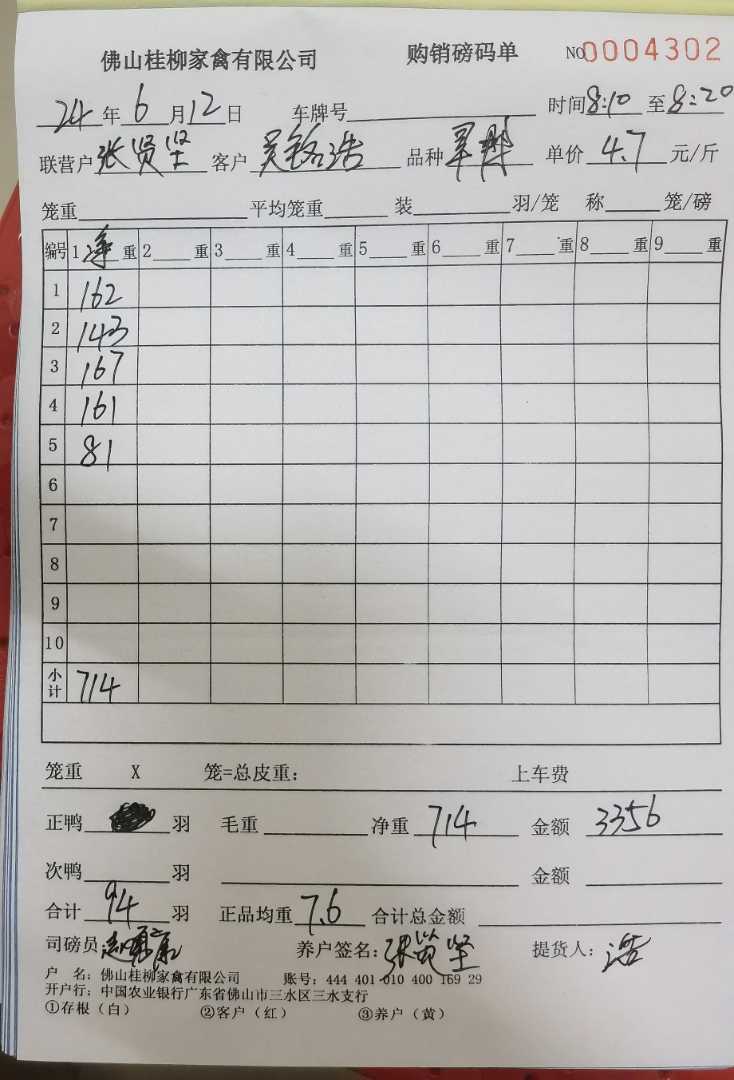 佛山桂柳家禽有限公司 购销磅码单 NO0004302
24年6月12日 车牌号 时间8:10至8:20
联营户张贤坚 客户吴铭浩 品种 单价4.7元/斤
笼重 平均笼重 装 羽/笼 称 笼/磅
编号 1净重 2 重 3 重 4 重 5 重 6 重 7 重 8 重 9 重
1 162
2 143
3 167
4 161
5 81
6
7
8
9
10
小计 714
笼重 X 笼=总皮重: 上车费
正鸭 羽 毛重 净重714 金额3356
次鸭 羽 金额
合计94羽 正品均重7.6 合计总金额
司磅员 养户签名:张贤坚 提货人:浩
户 名:佛山桂柳家禽有限公司 账号:444 401 010 400 169 29
开户行:中国农业银行广东省佛山市三水区三水支行
①存根(白) ②客户(红) ③养户(黄)